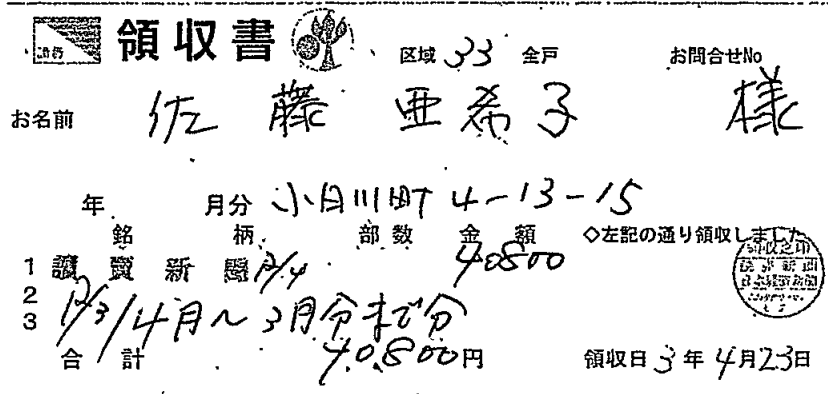 領収書 区域 33 全戸 お問合せNo
お名前 佐藤 亜希子 様
年 月分 小白川町 4-13-15
銘柄 部数 金額 ◇左記の通り領収しました
1 讀賣新聞 40800
2
3 /4月～3月分まで分
合計 40,800円 領収日 3年4月23日